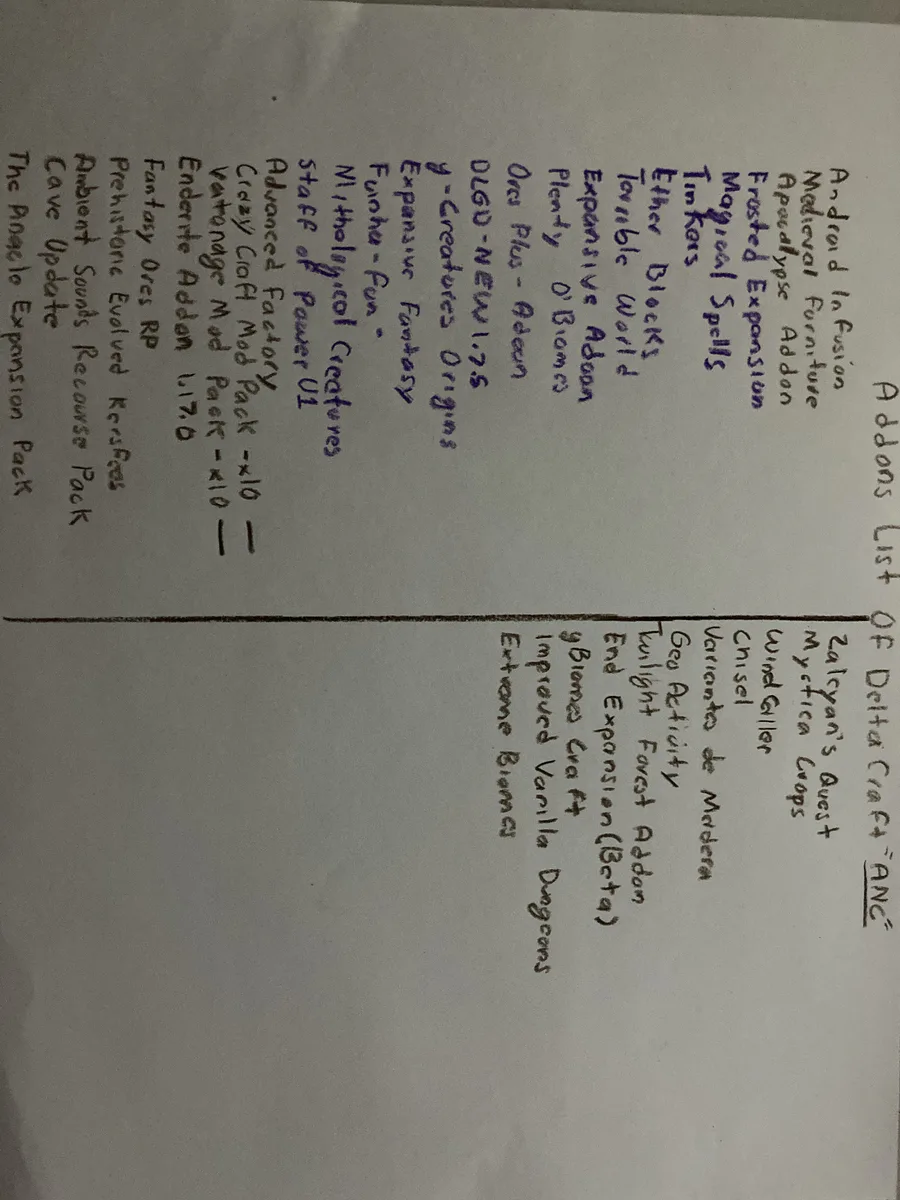 Addons List Of Delta Craft "ANC"
Android Infusion
Medieval Furniture
Apocdlypse Addon
Frosted Expansion
Magical Spells
Tinkers
Ether Blocks
Terrible World
Expansive Addon
Plenty O'Biomes
Ores Plus - Addon
DLGD-NEW 1.7.5
y-Creatures Origins
Expansive Fantasy
Funtha-fun"
Mithological Creatures
Staff of Power V1
Advanced Factory
Crazy Craft Mod Pack -x10 —
Vantonage Mod Pack -x10 —
Enderite Addon 1.17.0
Fantasy Ores RP
Prehistoric Evolved
Ambient Sounds Recourse Pack
Cave Update
The Angelo Expansion Pack
Zaleyan's Quest
Mystica Crops
Wind Caller
Chisel
Variantes de Madera
Geo Activity
Twilight Forest Addon
End Expansion (Beta)
yBiomes Craft
Improved Vanilla Dungeons
Extreme Biomes